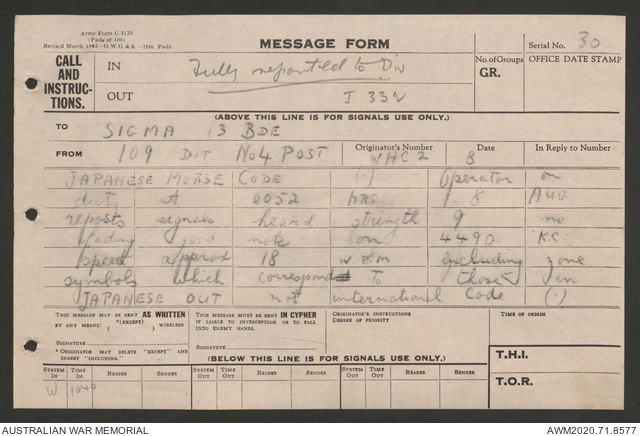 Army Form C.2136
(Pads of 100)
Revised March 1942—G.W.G.&S.—10m. Pads
MESSAGE FORM
Serial No. 30
CALL AND INSTRUCTIONS.
IN Fully reported to Div
OUT I 332
No. of Groups
GR.
OFFICE DATE STAMP
(ABOVE THIS LINE IS FOR SIGNALS USE ONLY.)
TO SIGMA 13 BDE
FROM 109 Dit No4 POST
Originator's Number WHC2
Date 8
In Reply to Number
JAPANESE MORSE CODE (-) Operator on
duty at 0052 HRS 18 AUG.
reports signals heard strength 9 no
fading good note on 4490 K.C.
speed approx 18 w.p.m excluding zone
symbols which correspond to those in
JAPANESE OUT not international Code (-)
THIS MESSAGE MAY BE SENT AS WRITTEN
BY ANY MEANS. (*(EXCEPT)) WIRELESS
SIGNATURE
* ORIGINATOR MAY DELETE "EXCEPT" AND
INSERT "INCLUDING."
THIS MESSAGE MUST BE SENT IN CYPHER
IF LIABLE TO INTERCEPTION OR TO FALL
INTO ENEMY HANDS.
SIGNATURE
ORIGINATOR'S INSTRUCTIONS
DEGREE OF PRIORITY
TIME OF ORIGIN
(BELOW THIS LINE IS FOR SIGNALS USE ONLY.)
T.H.I.
T.O.R.
SYSTEM IN TIME IN READER SENDER SYSTEM OUT TIME OUT READER SENDER SYSTEM OUT TIME OUT READER SENDER
W 1040
AUSTRALIAN WAR MEMORIAL
AWM2020.71.8577